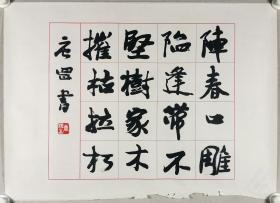 摧堅陷陣
枯樹逢春
拉家帶口
朽木不雕
書